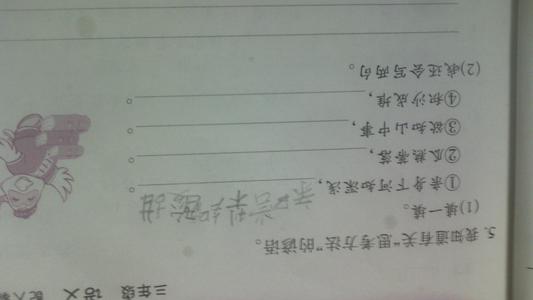 三年级 语文 配人
5. 我知道有关“思考方法”的谚语。
(1)填一填。
①亲身下河知深浅，亲口尝梨知酸甜。
②瓜熟蒂落，。
③欲知山中事，。
④积沙成堆，。
(2)我还会写两句。